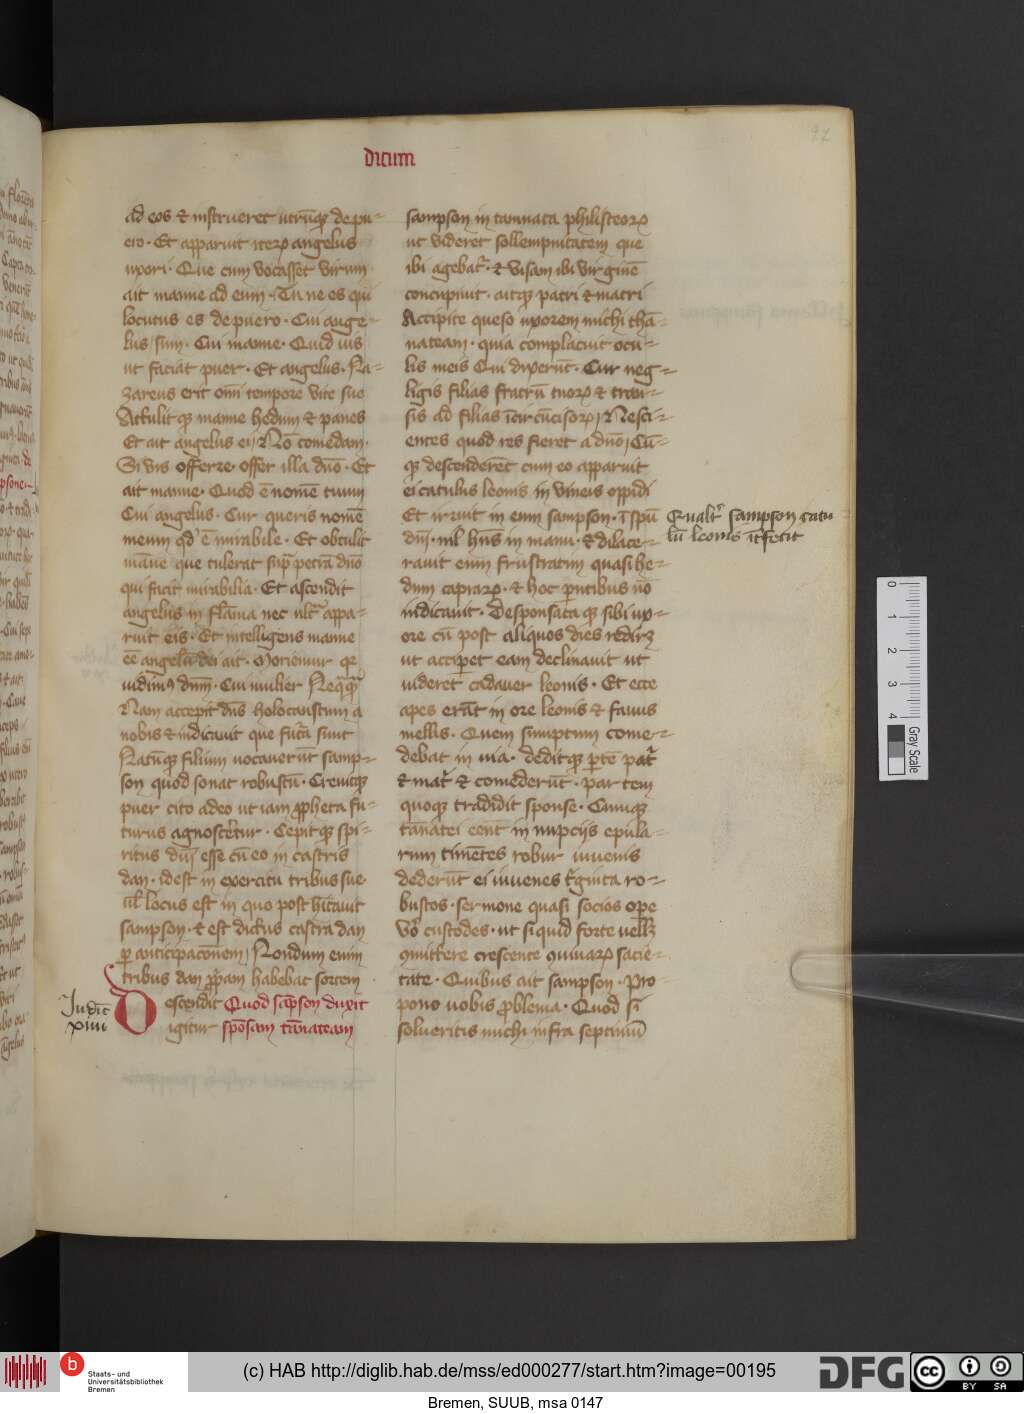 dicum
92
ad eos et instrueret utrūq̄ꝫ de pu=
ero. Et apparuit iterꝝ angelus
uxori. Que cum vocasset virum
ait manue ad eum. Tu ne es qui
locutus es de puero. Cui ange=
lus / sum. Cui manue. Quid uis
ut faciat puer. Et angelus. Na=
zareus erit om̄i tempore vite sue
Attulitqꝫ manue hedum et panes
Et ait angelus ei / Nō comedam.
Si vis offerre. offer illa dn̄o. Et
ait manue. Quod ē nomē tuum
Cui angelus. Cur queris nomē
meum qd' ē mirabile. Et obtulit
manue que tulerat sup̄ petrā dn̄o
qui facit mirabilia. Et ascendit
angelus in flāma nec ult᷑ appa=
ruit eis. Et intelligens manue
eē angelū dei ait. Moriemur qꝛ
uidimꝰ dn̄m. Cui mulier Neq̄q̄ꝫ
Nam accepit dn̄s holocaustum a
nobis et indicauit que fut̄a sunt
Natūqꝫ filium uocauerūt samp=
son quod sonat robustū. Creuitqꝫ
puer cito adeo ut iam ꝓpheta fu=
turus agnosceret᷑. Cepitqꝫ spi=
ritus dn̄i esse cū eo in castris
dan. idest in exercitu tribus sue
ul' locus est in quo post hitauit
sampson. et est dictus castra dan
ꝑ anticipacōnem / Nondum enim
tribus dan ꝓp̄am habebat sortem
Judic̄
xiiii
Descendit Quod sāpson duxit
igitur spōsam tāmateam
sampson in tamnata philisteorꝝ
ut videret sollempnitatem que
ibi agebat᷑. et visam ibi virginē
concupiuit. aitqꝫ patri et matri
Accipite queso uxorem michi thā=
nateam. quia complacuit ocu=
lis meis Qui dixerūt. Cur neg=
ligis filias fratrū tuorꝝ et tran=
sis ad filias īcircūcisorꝝ / Nesci=
entes quod res fieret a dn̄o / Cū=
qꝫ descenderēt cum eo apparuit
ei catulus leonis in vineis oppidi
Et irruit in eum sampson. ī spū
dn̄i. nl' hn̄s in manu. et dilace=
rauit eum frustratim quasi he=
dum caprarꝝ. et hoc ꝑentibus nō
indicauit. Desponsata qꝫ sibi ux=
ore cū post aliquos dies rediret
ut acciꝑet eam declinauit ut
uideret cadauer leonis. Et ecce
apes erāt in ore leonis et fauus
mellis. Quem sumptum come=
debat in uia. deditqꝫ ꝑtē pat᷑
et mat᷑ et comederūt. Partem
quoqꝫ tradidit sponse. Cumqꝫ
tāmatei eēnt in nupcijs epula=
rum timētes robur iuuenis
dederūt ei iuuenes t᷑ginta ro=
bustos. sermone quasi socios oꝑe
vō custodes. ut si quid forte uellꝫ
ꝯmittere crescente ꝯuiuarꝝ sacie=
tate. Quibus ait sampson. Pro=
pono uobis ꝓblema. Quod si
solueritis michi infra septimū
Qualit᷑ sampson catu
lū leonis īt᷑fecit
0
1
2
3
4
Gray Scale
Staats- und
Universitätsbibliothek
Bremen
(c) HAB http://diglib.hab.de/mss/ed000277/start.htm?image=00195
DFG
cc BY SA
Bremen, SUUB, msa 0147